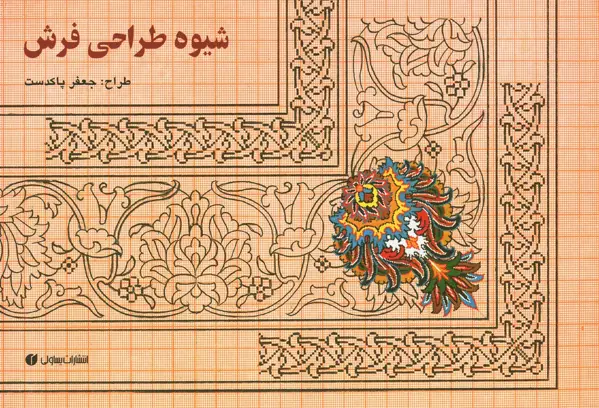 شیوه طراحی فرش
طراح: جعفر پاکدست
انتشارات یساولی